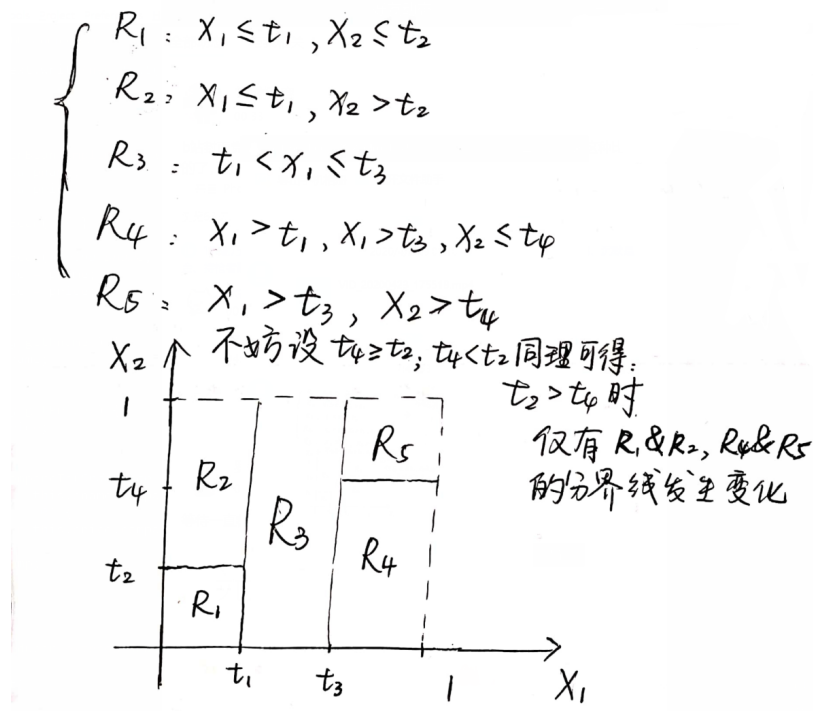 R₁: X₁≤t₁, X₂≤t₂
R₂: X₁≤t₁, X₂>t₂
R₃: t₁<X₁≤t₃
R₄: X₁>t₁, X₁>t₃, X₂≤t₄
R₅: X₁>t₃, X₂>t₄
不妨设 t₄≥t₂; t₄<t₂同理可得:
t₂>t₄时
仅有 R₁&R₂, R₄&R₅
的分界线发生变化
X₂
1
t₄
t₂
R₂
R₅
R₃
R₄
R₁
t₁
t₃
1
X₁